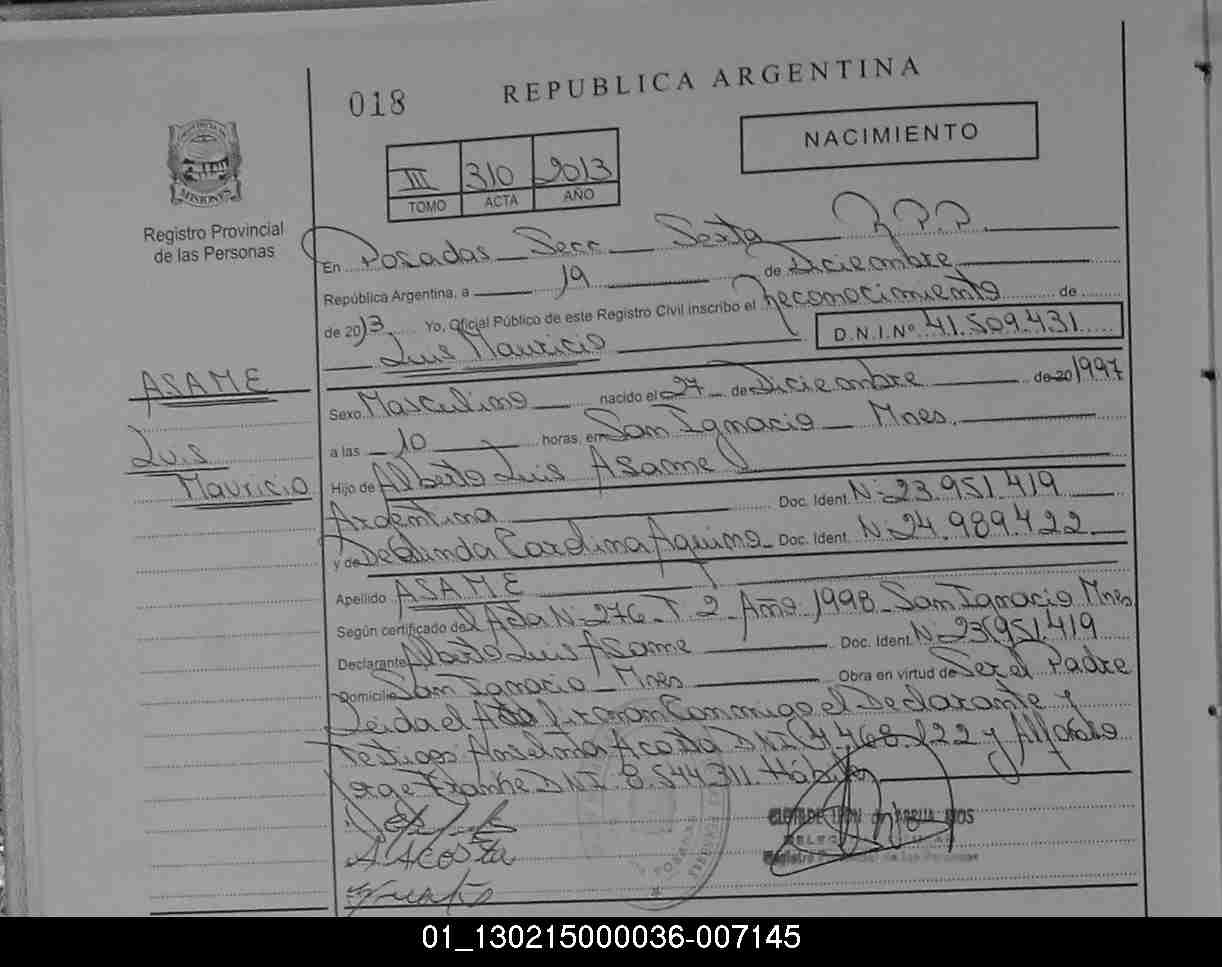 018
REPUBLICA ARGENTINA
NACIMIENTO
III 310 2013
TOMO ACTA AÑO
PROVINCIA DE MISIONES
Registro Provincial
de las Personas
En Posadas Secc Sexta R.P.P.
República Argentina, a 19 de Diciembre
de 2013 Yo, Oficial Público de este Registro Civil inscribo el reconocimiento de
Luis Mauricio D.N.I. Nº 41.509.431
ASAME
Luis
Mauricio
Sexo Masculino nacido el 27 de Diciembre de 20 1997
a las 10 horas, en San Ignacio Mnes.
Hijo de Alberto Luis Asame
Argentina Doc. Ident. N: 23.951.419
y de Carolina Aquino Doc. Ident. N: 24.989.422
Apellido ASAME
Según certificado del Acta N: 276 T. 2 Año 1998 San Ignacio Mnes
Declarante Alberto Luis Asame Doc. Ident. N: 23.951.419
Domicilio San Ignacio Mnes Obra en virtud de Ser el Padre
Leida el Acta firman Conmigo el Declarante y
Testigos Anselma Acosta DNI 468.122 y
Jorge DNI. 8.544.311. Hábiles
A ACOSTA
Registro Provincial de las Personas
POSADAS
01_130215000036-007145